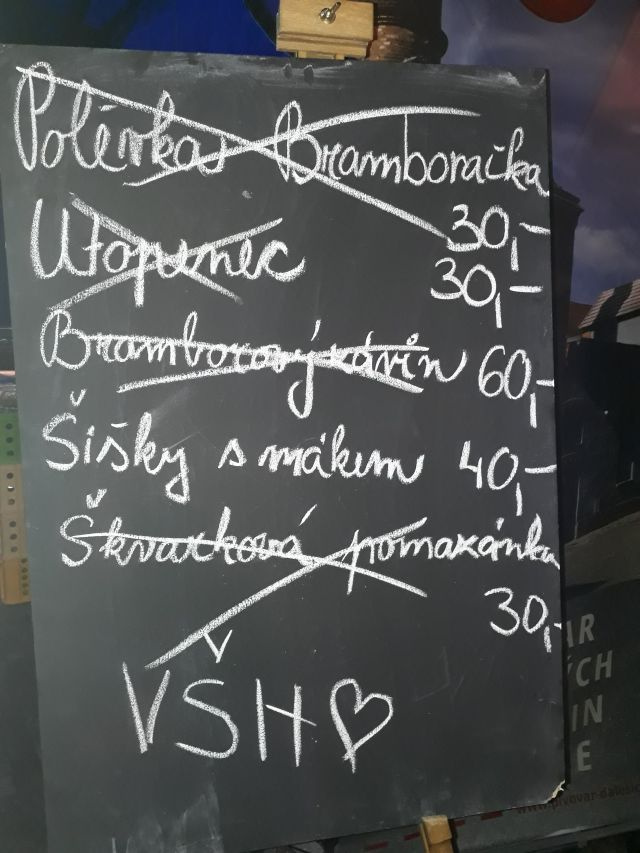 Polévka Bramboračka
30,-
Utopenec 30,-
Bramborový závin 60,-
Šišky s mákem 40,-
Škvarková pomazánka
30,-
VŠH♡
AR
ÝCH
IN
E
www.pivovar-dales